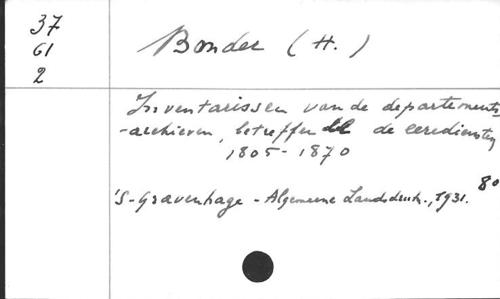 37
61
2
Bonder (H.)
Inventarissen van de departements
-archieven, betreffende de eerediensten
1805-1870
8º
's-Gravenhage - Algemeene Landsdruk., 1931.